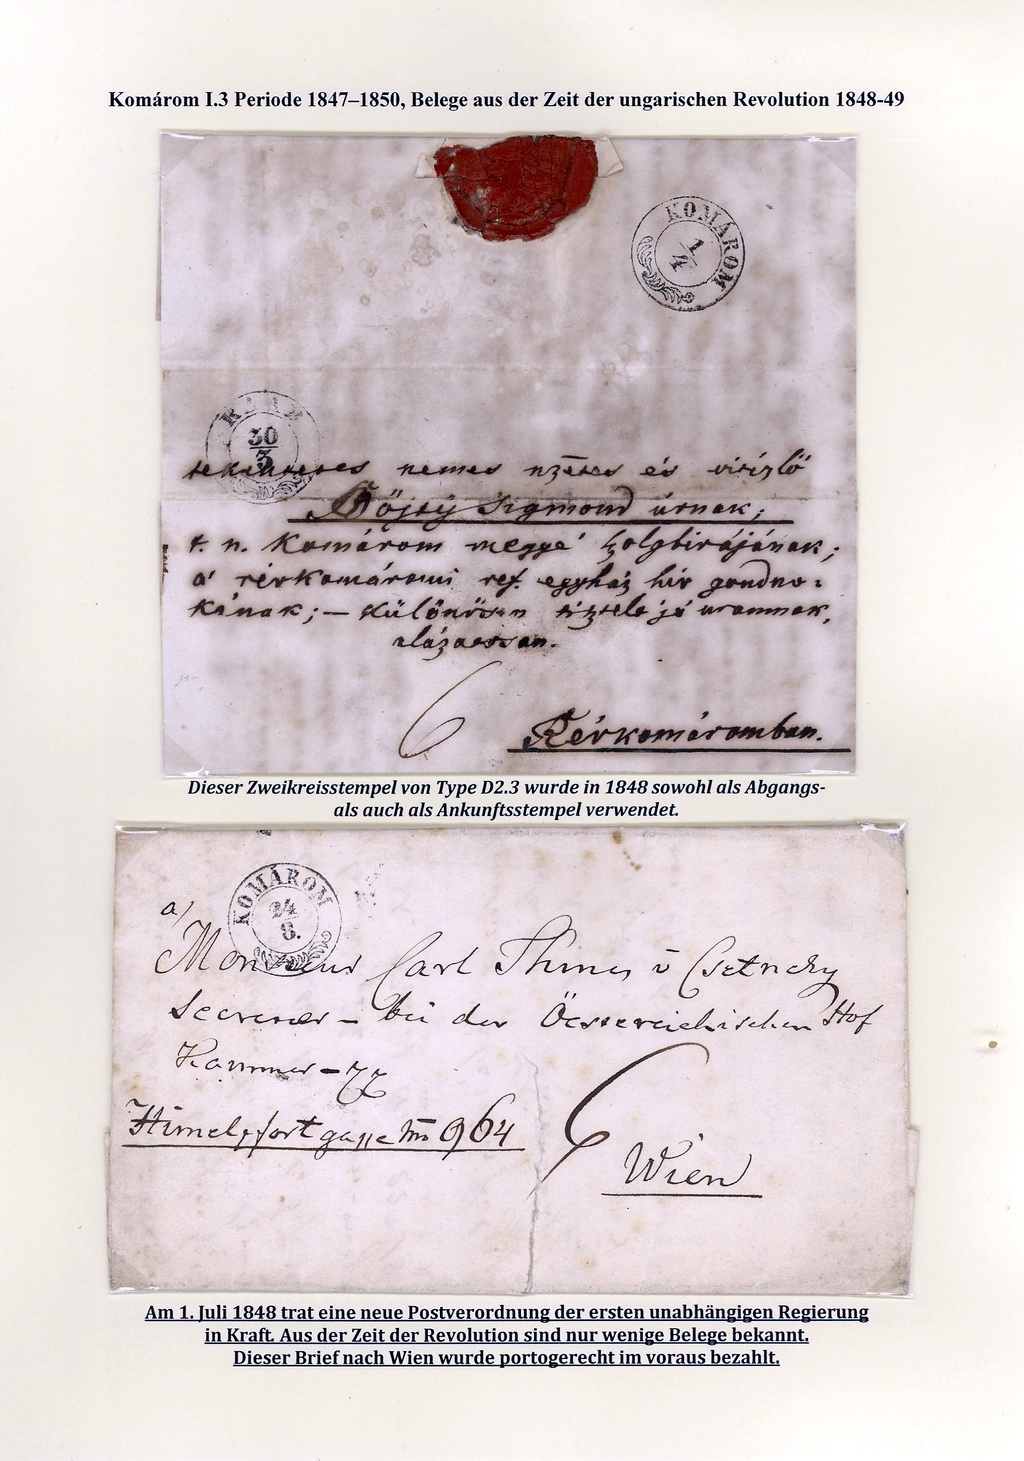 Komárom I.3 Periode 1847–1850, Belege aus der Zeit der ungarischen Revolution 1848-49
KOMÁROM
1/4
RAAB
30/3
tekintetes nemes nzetes és vitézlő
Sigmond úrnak;
t. n. Komárom megye
a' révkomáromi ref. egyház hív gondno-
kának; – különösen úramnak,
alázatossan.
6
Révkomáromban.
Dieser Zweikreisstempel von Type D2.3 wurde in 1848 sowohl als Abgangs-
als auch als Ankunftsstempel verwendet.
KOMÁROM
24/8.
a/
Monsieur Carl v
– bei der Öesterreichischen Hof
Kammer –
Himelpfortgasse No 964
6
Wien
Am 1. Juli 1848 trat eine neue Postverordnung der ersten unabhängigen Regierung
in Kraft. Aus der Zeit der Revolution sind nur wenige Belege bekannt.
Dieser Brief nach Wien wurde portogerecht im voraus bezahlt.